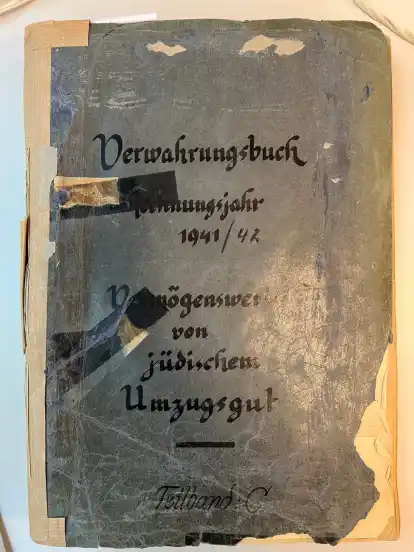 Verwahrungsbuch
Rechnungsjahr
1941/42
Vermögenswerte
von
jüdischem
Umzugsgut
Teilband: C